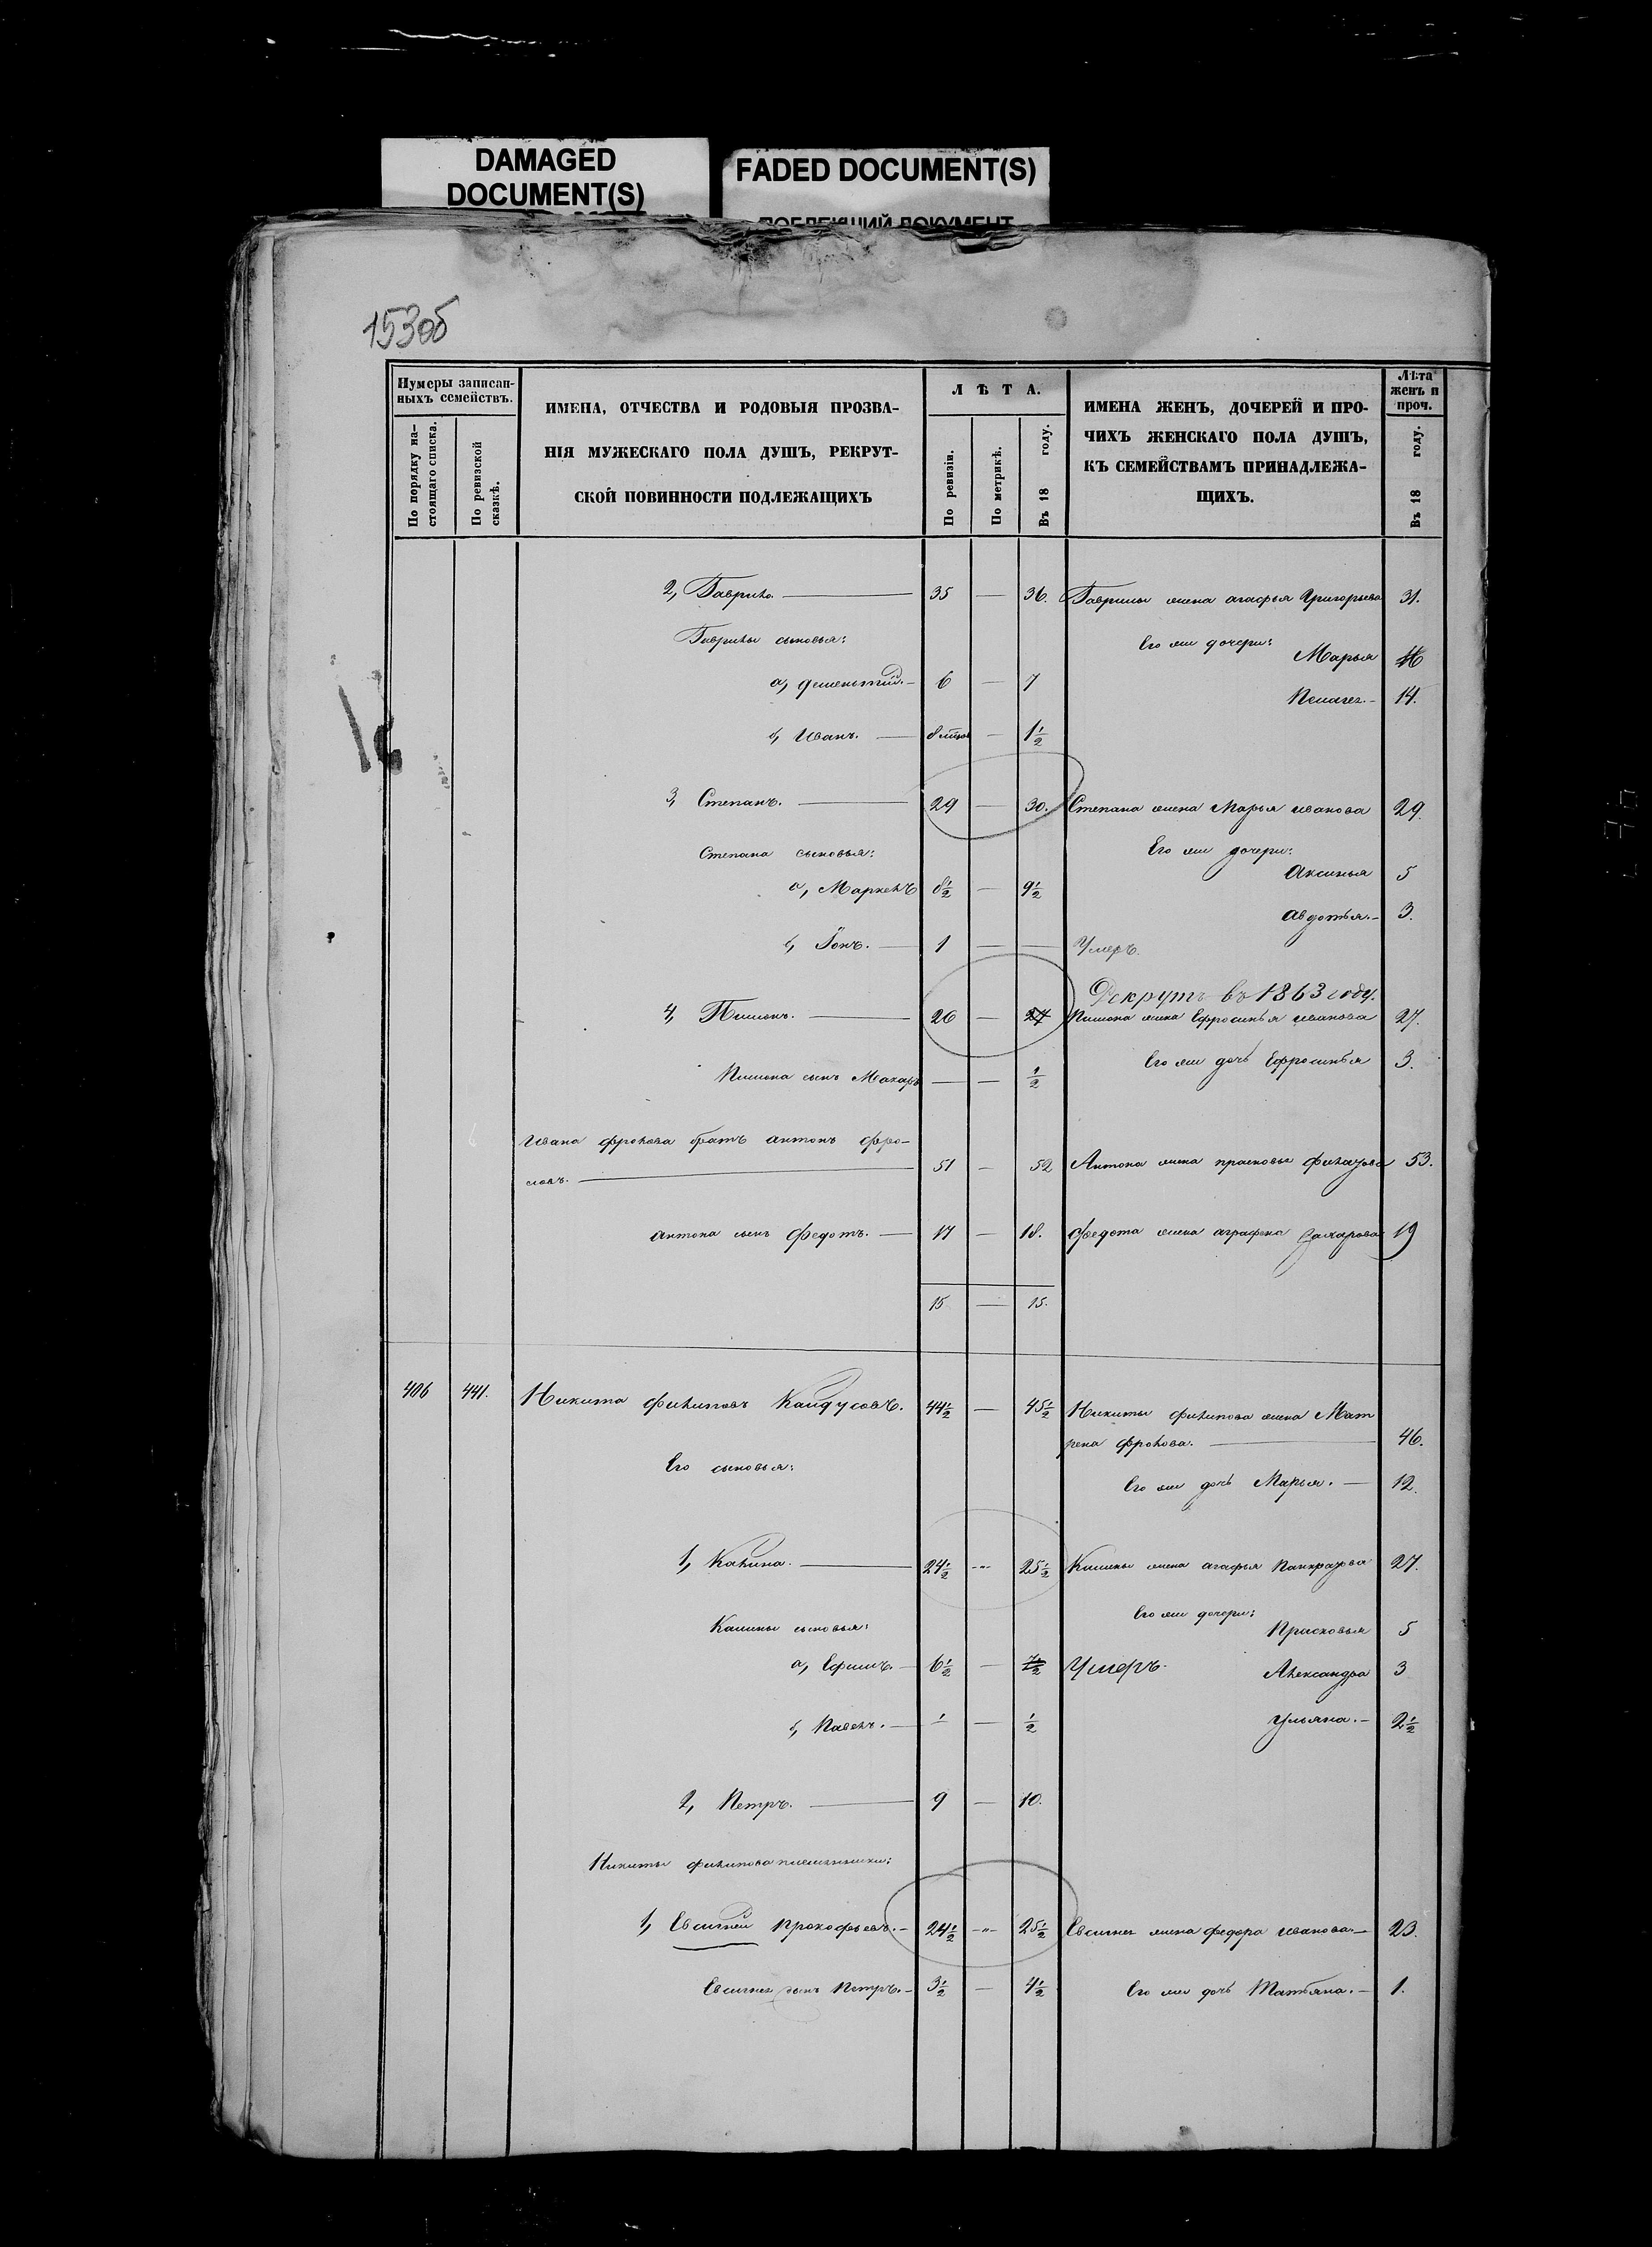 DAMAGED
DOCUMENT(S)
FADED DOCUMENT(S)
153об
Нумеры записан-
ныхъ семействъ.
По порядку на-
стоящаго списка.
По ревизской
сказкѣ.
ИМЕНА, ОТЧЕСТВА И РОДОВЫЯ ПРОЗВА-
НІЯ МУЖЕСКАГО ПОЛА ДУШЪ, РЕКРУТ-
СКОЙ ПОВИННОСТИ ПОДЛЕЖАЩИХЪ
ЛѢТА.
По ревизіи.
По метрикѣ.
Въ 18 году.
ИМЕНА ЖЕНЪ, ДОЧЕРЕЙ И ПРО-
ЧИХЪ ЖЕНСКАГО ПОЛА ДУШЪ,
КЪ СЕМЕЙСТВАМЪ ПРИНАДЛЕЖА-
ЩИХЪ.
Лѣта
женъ и
проч.
Въ 18 году.
2, Гаврило. — 35 — 36. Гаврилы жена агафья Григорьева 31.
Гаврилы сыновья: Его же дочери:
Марья 16
а, Дементій. — 6 — 7
Пелагея. — 14.
б, Иванъ. — — 1½
3, Степанъ. — 29 — 30. Степана жена Марья иванова 29.
Степана сыновья: Его же дочери:
Аксинья 5
а, Маркелъ 8½ — 9½
авдотья. — 3.
б, Іонъ. — 1 — — Умеръ.
Рекрутъ въ 1863 году.
4, Пимонъ. — 26 — 27 Пимона жена Ефросинья иванова 27.
Его же дочь Ефросинья 3.
Пимона сынъ Макаръ — — ½
Ивана фролова братъ антонъ фро-
ловъ. — 51 — 52 Антона жена прасковья 53.
антона сынъ федотъ. — 17 — 18. федота жена аграфена Захарова 19
15 — 15.
406 441. Никита филиповъ Кайдусовъ. 44½ — 45½ Никиты филипова жена Мат
рена фролова. — 46.
Его сыновья:
Его же дочь Марья. — 12.
1, Калина. — 24½ — 25½ Калины жена агафья Панкратова 27.
Его же дочери:
Калины сыновья: Прасковья 5
а, Ефимъ. — 6½ — 7½ Умеръ. Александра 3
б, Павелъ. — — ½ Ульяна. — 2½
2, Петръ. — 9 — 10.
Никиты филипова племянники:
1, Евсигнѣй Прокофьевъ. — 24½ — 25½ Евсигнея жена федора иванова — 23.
Евсигнея сынъ Петръ. — 3½ — 4½ Его же дочь Татьяна. — 1.